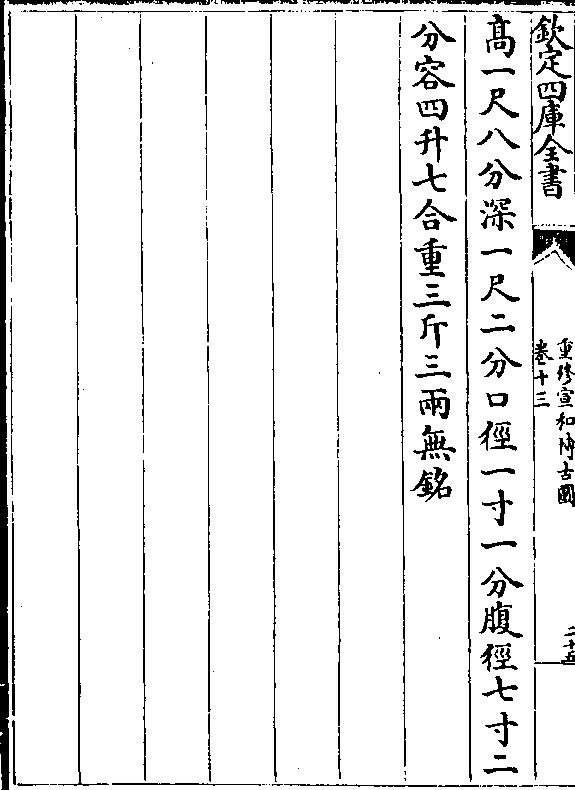 欽定四庫全書
重修宣和博古圖
卷十三
二十五
高一尺八分深一尺二分口徑一寸一分腹徑七寸二
分容四升七合重三斤三兩無銘